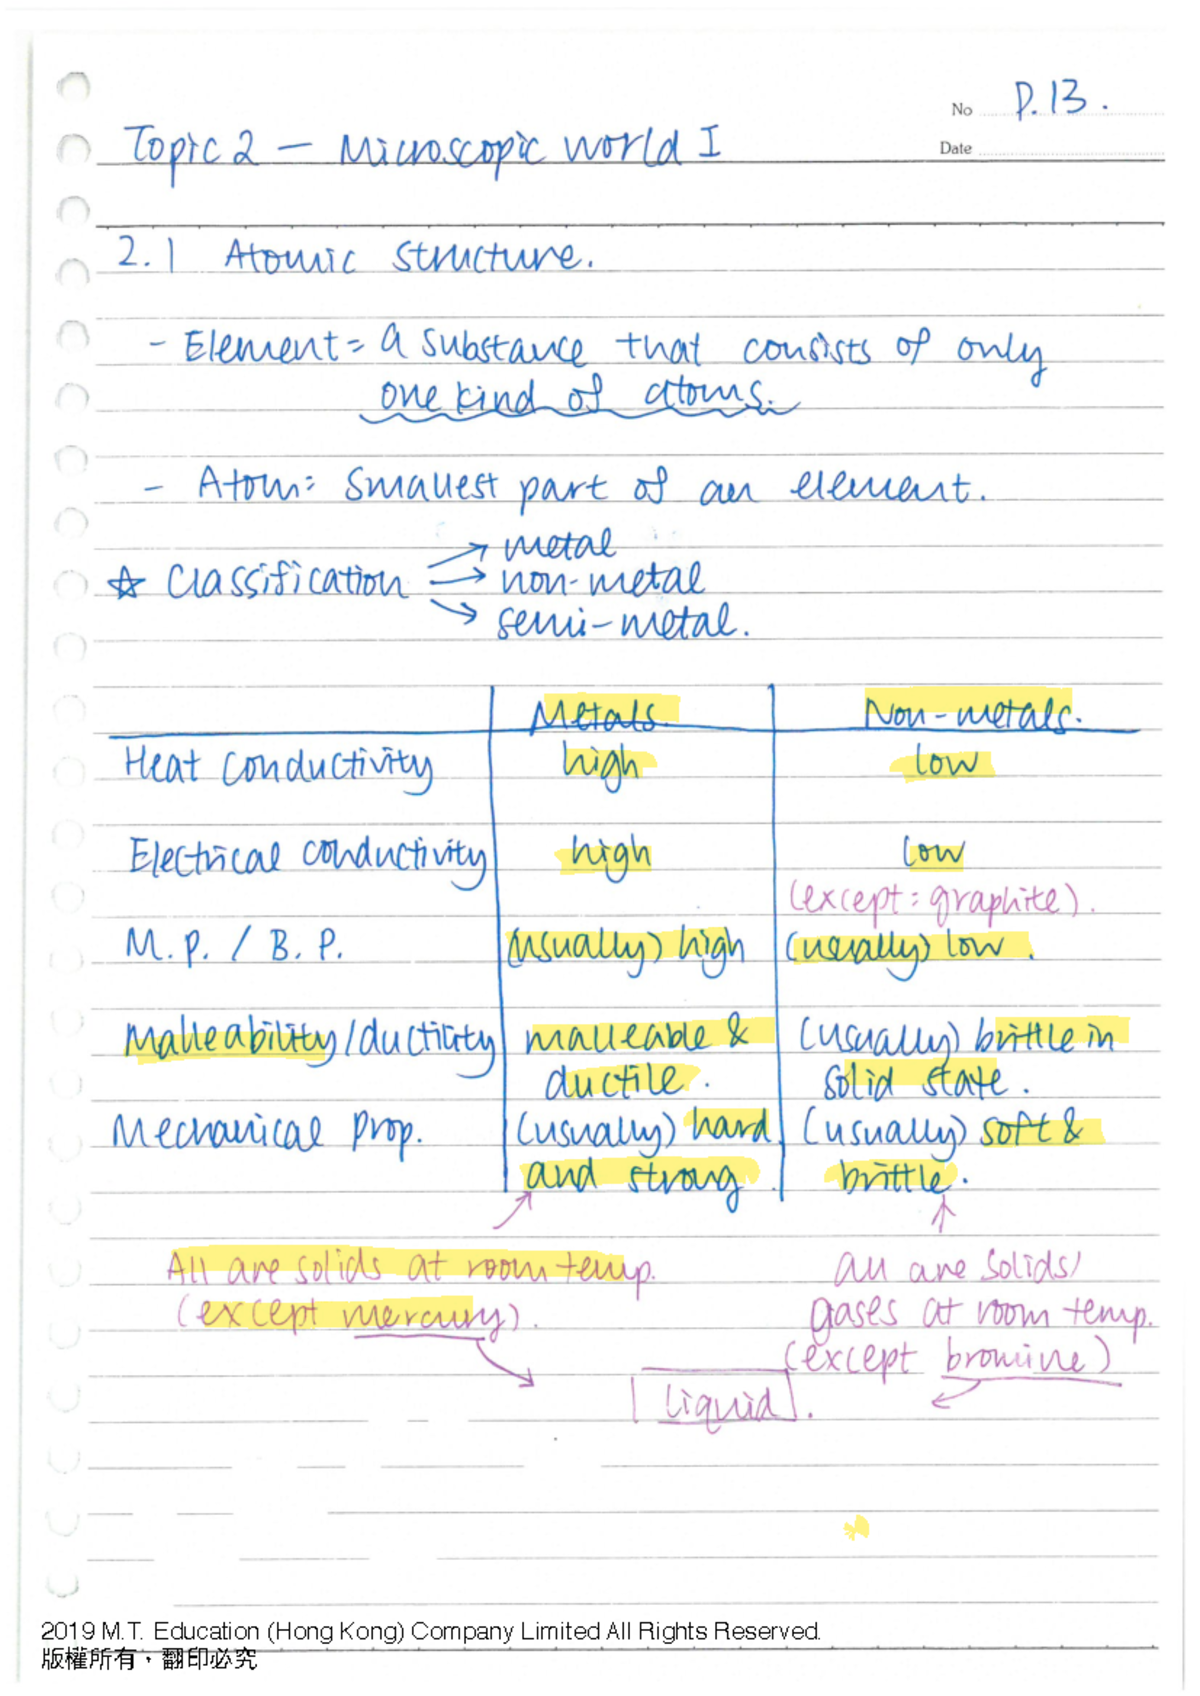 No P.13.
Topic 2 — Microscopic world I
Date
2.1 Atomic structure.
- Element = a substance that consists of only
one kind of atoms.
- Atom: smallest part of an element.
→ metal
☆ Classification → non-metal
→ semi-metal.
Metals. Non-metals.
Heat conductivity high low
Electrical conductivity high low
(except: graphite).
M.P. / B.P. (usually) high (usually) low.
Malleability/ductility malleable & (usually) brittle in
ductile. solid state.
Mechanical Prop. (usually) hard (usually) soft &
and strong brittle.
All are solids at room temp. all are solids/
(except mercury). gases at room temp.
(except bromine)
liquid.
2019 M.T. Education (Hong Kong) Company Limited All Rights Reserved.
版權所有，翻印必究